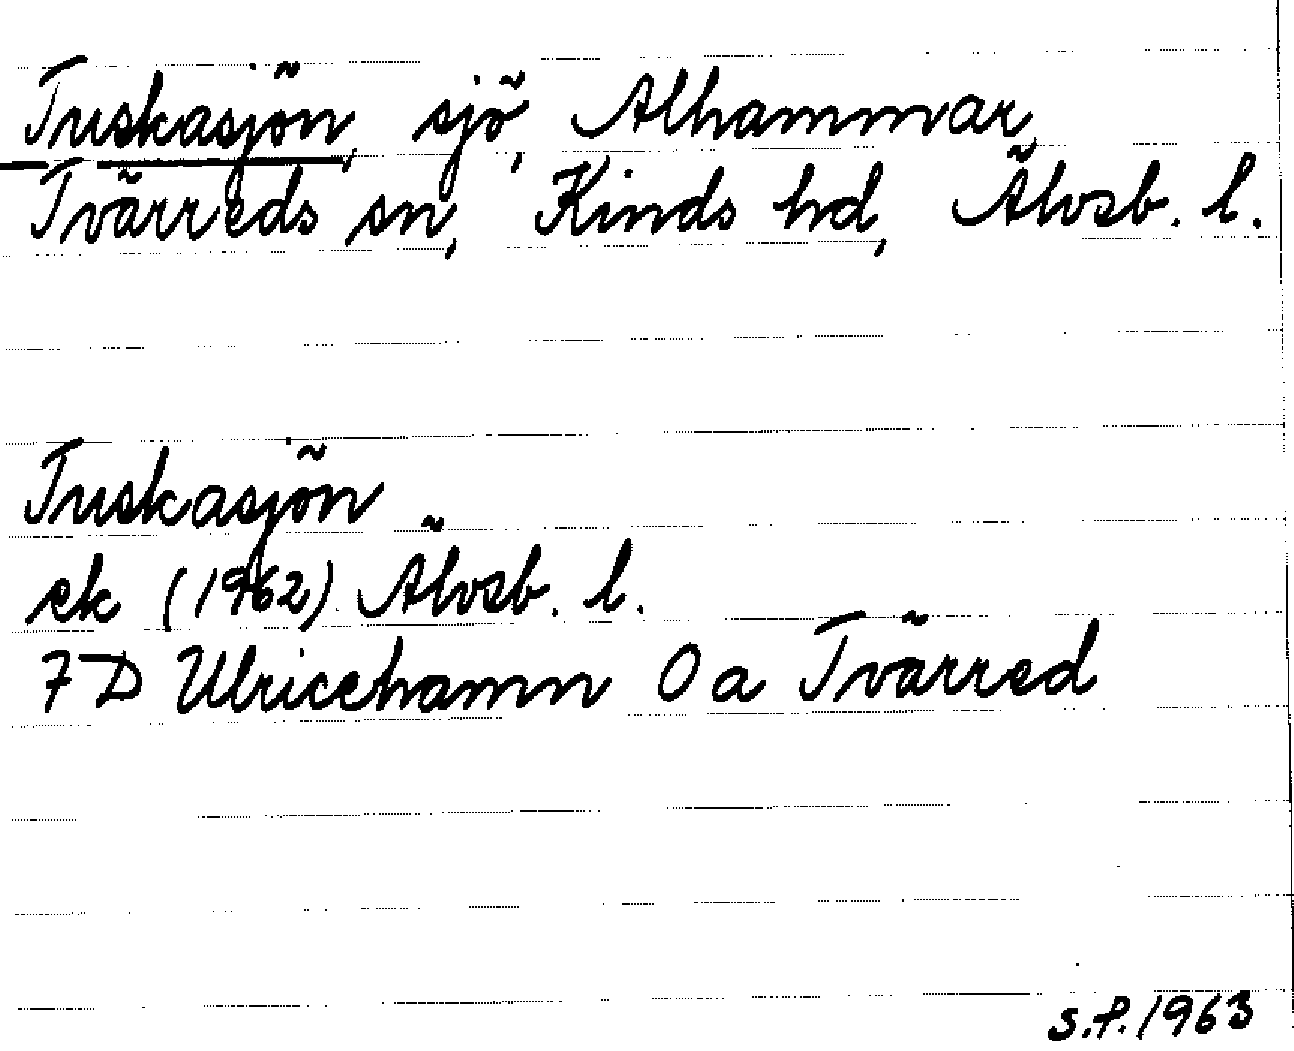 Tuskasjön, sjö, Alhammar,
Tvärreds sn, Kinds hd, Älvsb. l.
Tuskasjön
ek (1962) Älvsb. l.
7 D Ulricehamn 0 a Tvärred
S.P. 1963